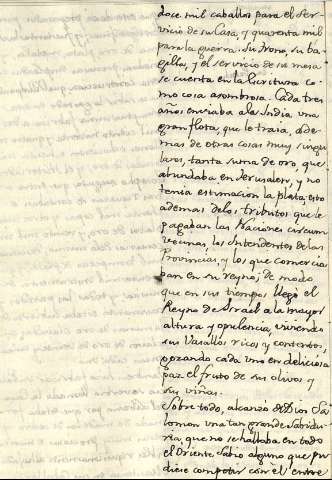 doce mil caballos para el ser-
vicio de su Casa, y quarenta mil
para la guerra. Su trono, su ba-
gilla, y el servicio de su mesa
se cuenta en la Escritura co-
mo cosa asombrosa. Cada tres
años enviaba a la India una
gran flota, que le traia, ade-
mas de otras cosas muy singu-
lares, tanta suma de oro, que
abundaba en Jerusalen, y no
tenia estimacion la plata; esto
ademas de los tributos que le
pagaban las Naciones circum-
vecinas, los Intendentes de las
Provincias, y los que comercia-
ban en su reyno; de modo
que en sus tiempos llegó el
Reyno de Israel a la mayor
altura y opulencia, viviendo
sus Vasallos ricos y contentos
gozando cada uno en deliciosa
paz el fruto de sus olivos y
sus viñas.
Sobre todo, alcanzó de Dios Sa-
lomon una tan grande Sabidu-
ria, que no se hallaba en todo
el Oriente Sabio alguno que pu-
diese competir con el entre